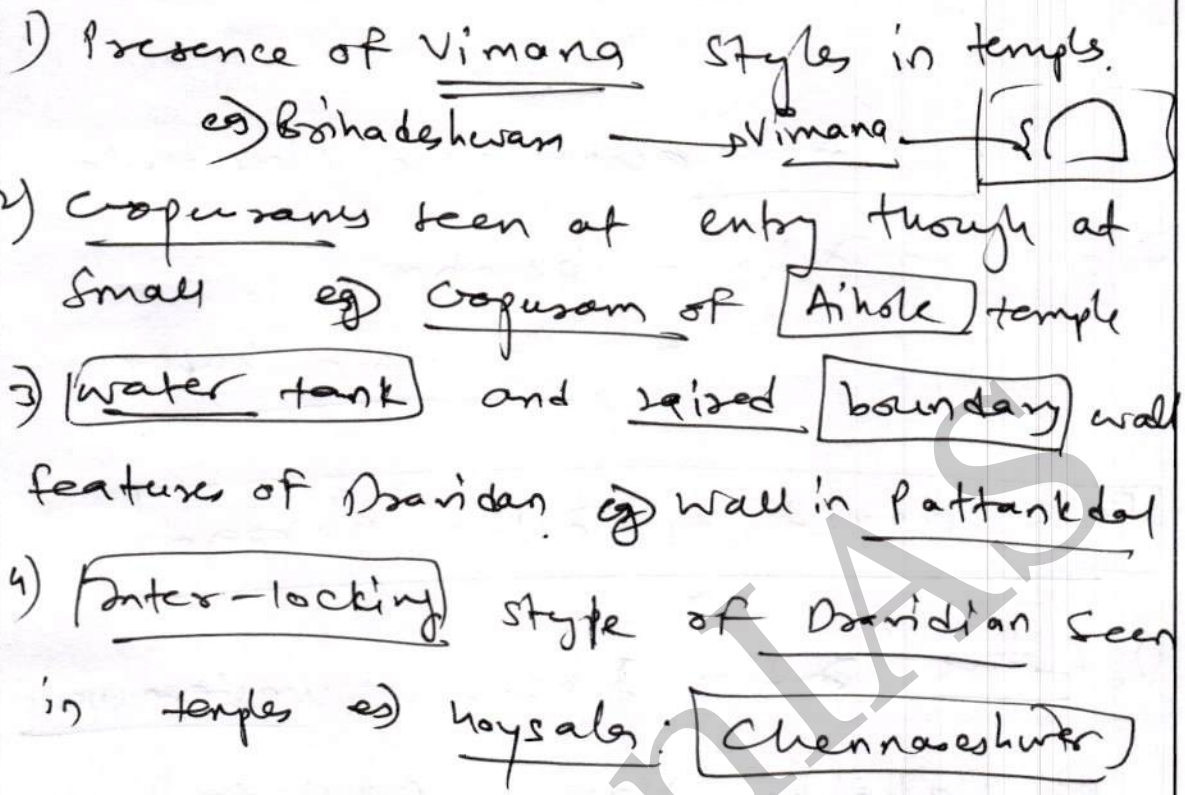 1) Presence of Vimana Styles in temples.
eg) Brihadeshwam → Vimana
2) Gopurams seen at entry though at
small eg) Gopuram of Aihole temple
3) water tank and raised boundary wall
features of Dravidan. eg) Wall in Pattankdal
4) Inter-locking style of Dravidian seen
in temples eg) hoysala: Chennaveshwer
nIAS